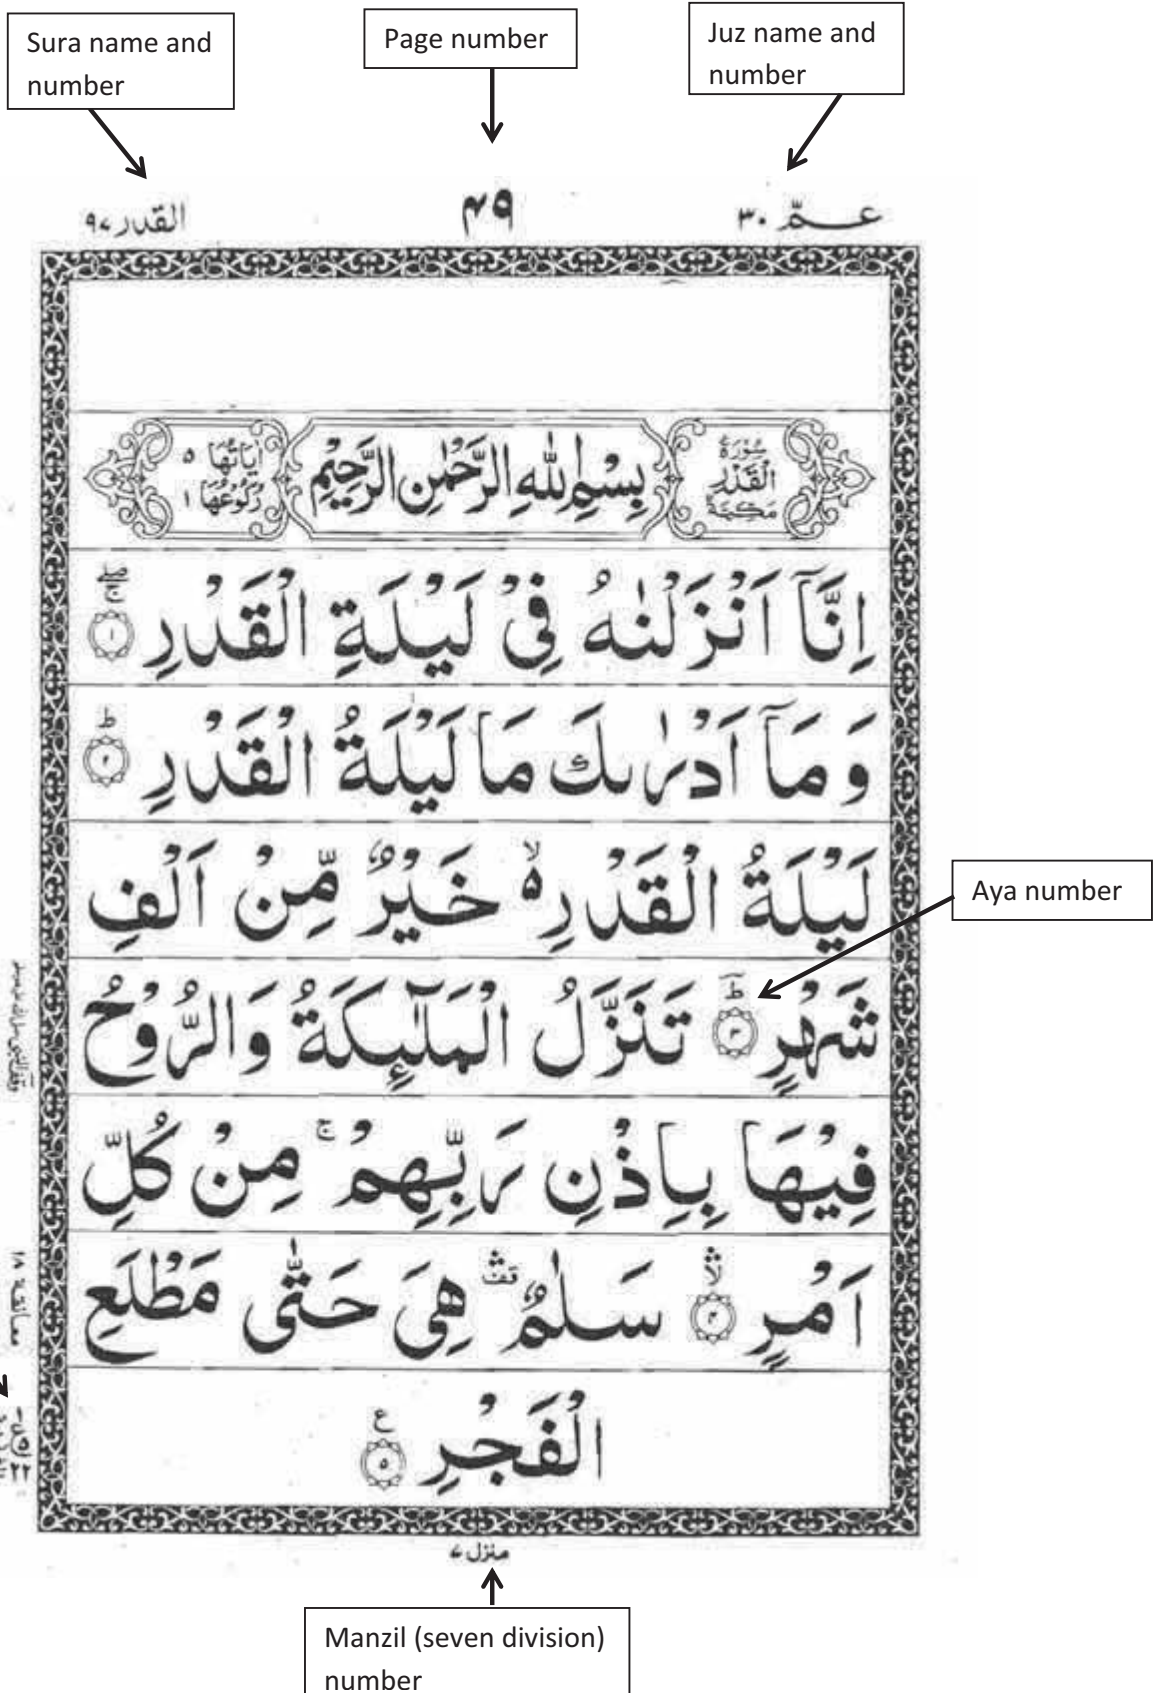 Sura name and
number
Page number
Juz name and
number
القدر ٩٧
۴۹
عـــمّ ٣٠
سُوْرَةُ
الْقَدْرِ
مَكِّيَّةٌ
بِسْمِ اللّٰهِ الرَّحْمٰنِ الرَّحِيْمِ
اٰيَاتُهَا ٥
رُكُوْعُهَا ١
اِنَّاۤ اَنْزَلْنٰهُ فِيْ لَيْلَةِ الْقَدْرِ ۚۖ ١
وَمَاۤ اَدْرٰىكَ مَا لَيْلَةُ الْقَدْرِ ؕ ٢
لَيْلَةُ الْقَدْرِ ۙ٥ خَيْرٌ مِّنْ اَلْفِ
شَهْرٍ ؕ ٣ تَنَزَّلُ الْمَلٰٓئِكَةُ وَالرُّوْحُ
فِيْهَا بِاِذْنِ رَبِّهِمْ ۚ مِنْ كُلِّ
اَمْرٍ ۙ ۴ سَلٰمٌ قف هِيَ حَتّٰى مَطْلَعِ
الْفَجْرِ ع ٥
Aya number
معانقة ١٨
٢٢
منزل ٧
Manzil (seven division)
number